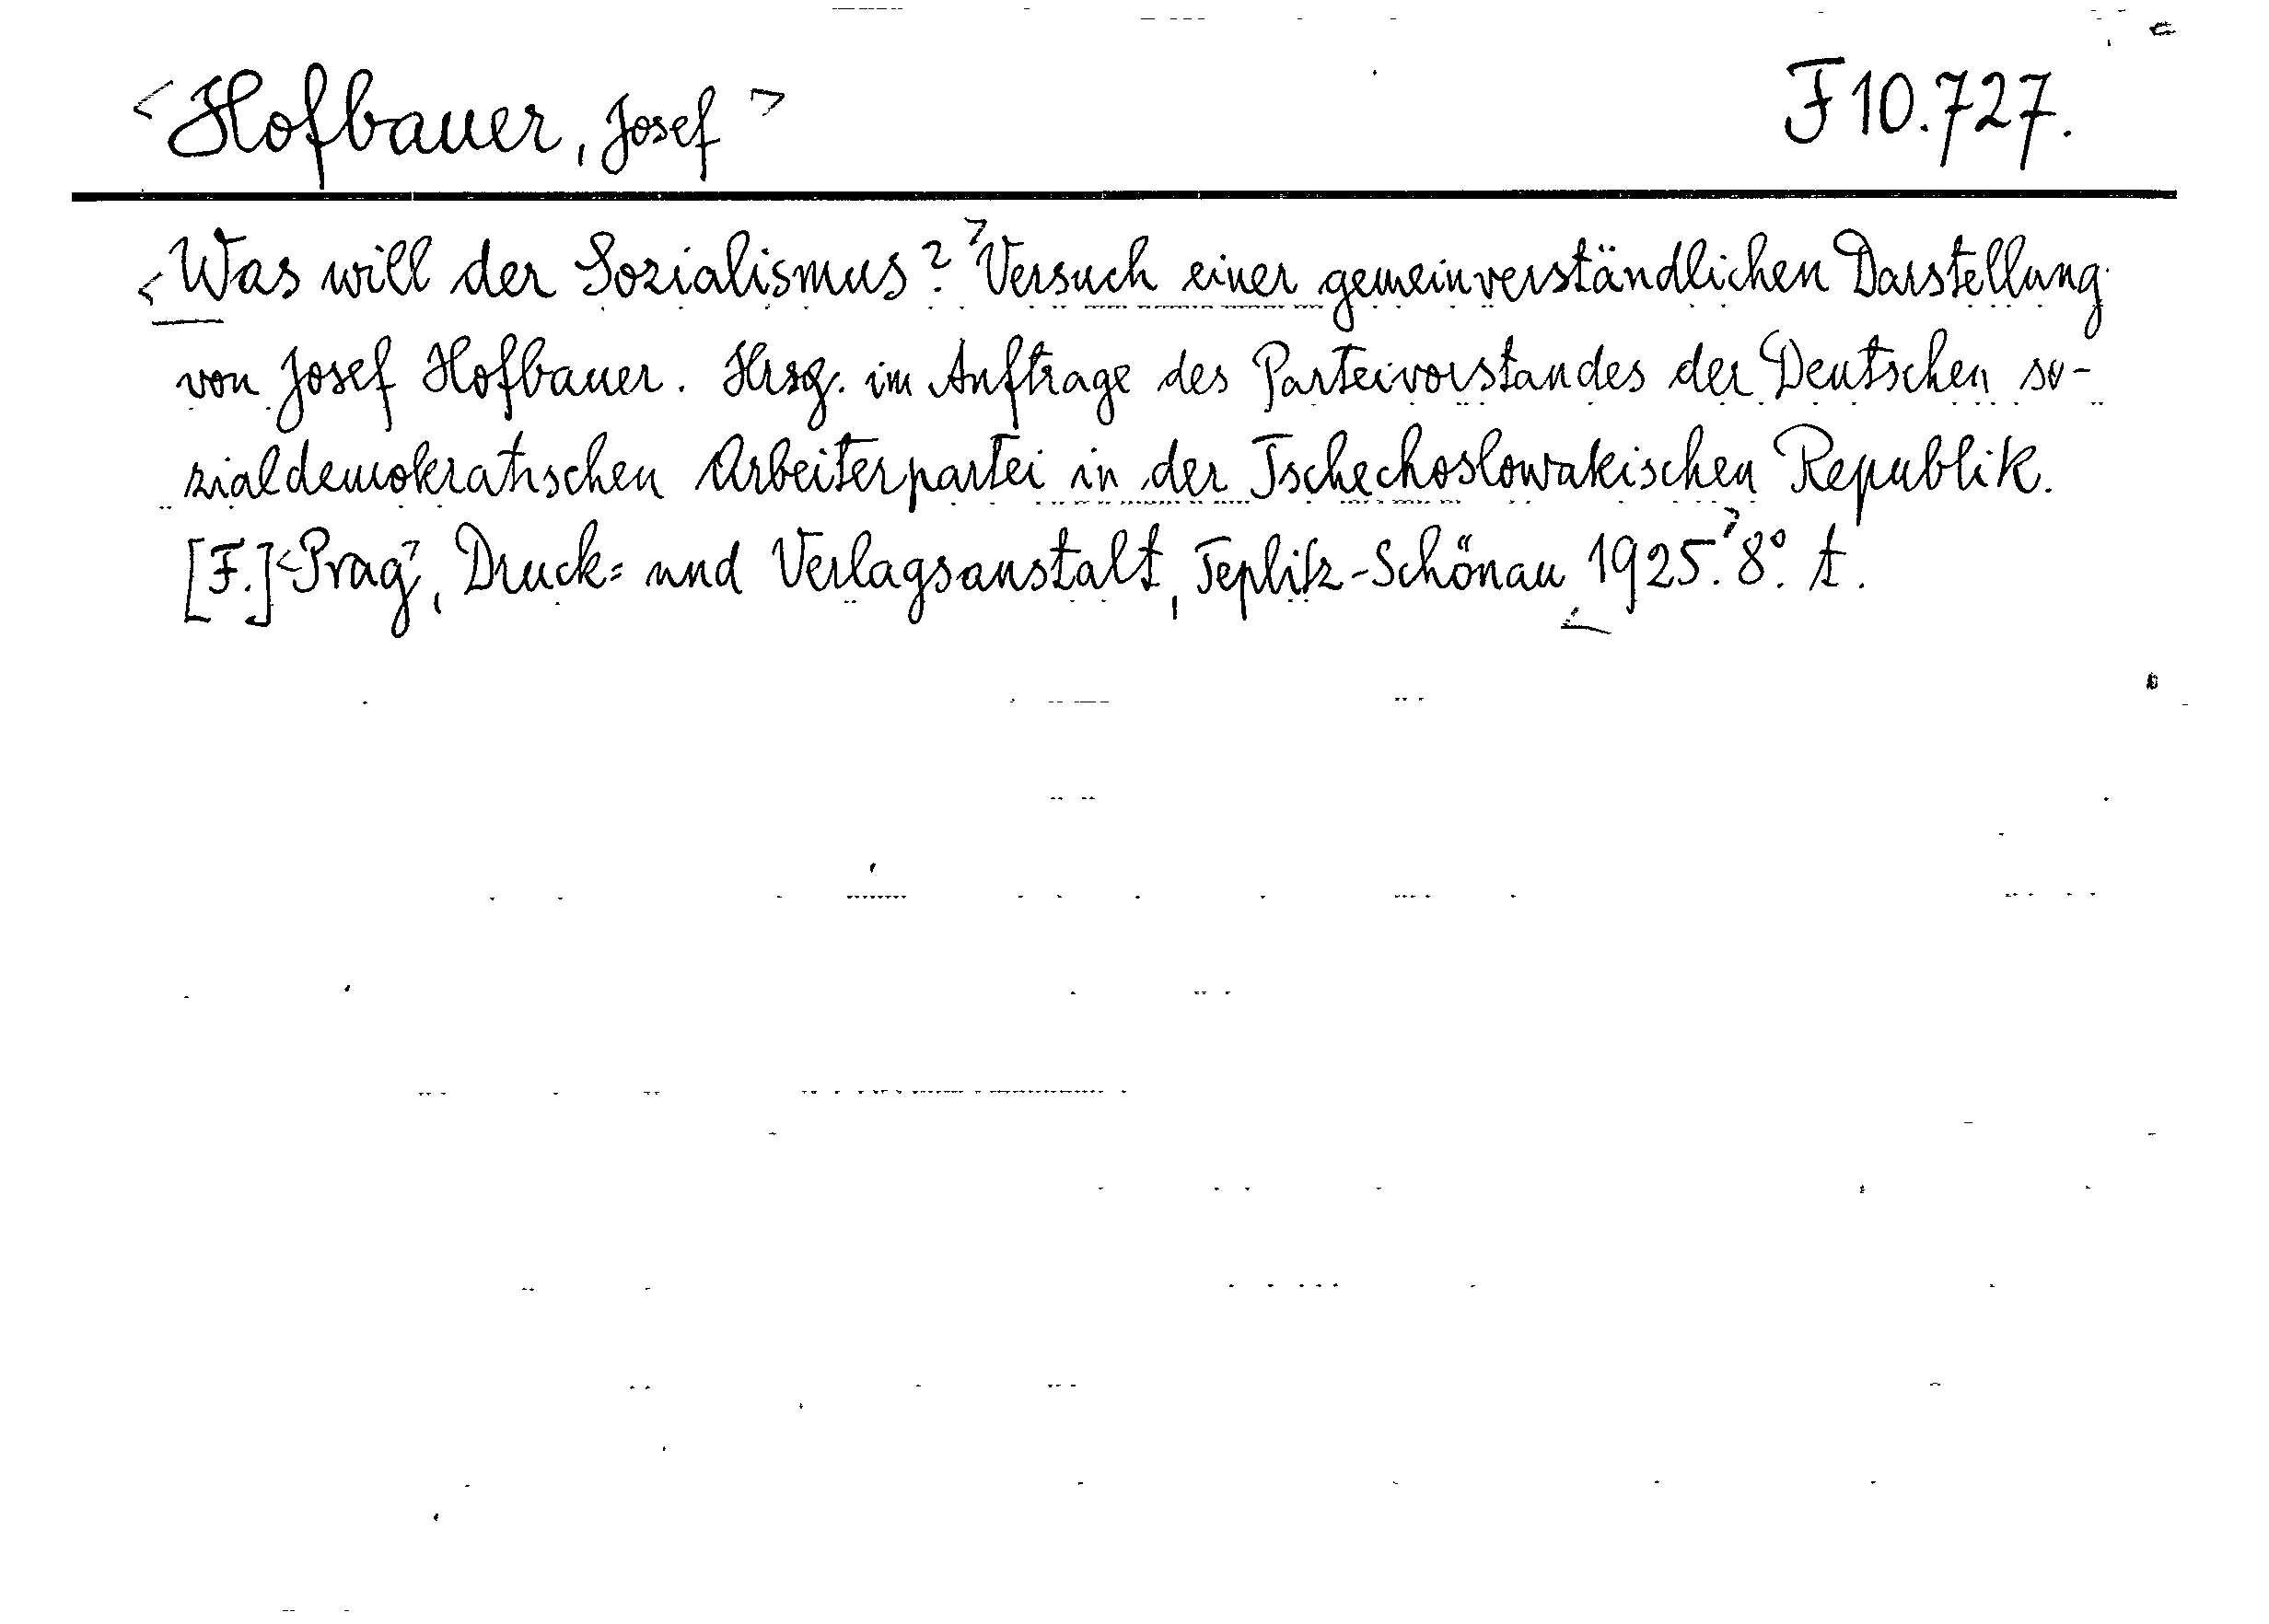 <Hofbauer, Josef> F 10.727.
<Was will der Sozialismus?> Versuch einer gemeinverständlichen Darstellung
von Josef Hofbauer. Hrsg. im Auftrage des Parteivorstandes der Deutschen so-
zialdemokratischen Arbeiterpartei in der Tschechoslowakischen Republik.
[F.] <Prag>, Druck= und Verlagsanstalt, Teplitz-Schönau <1925.> 8°. t.